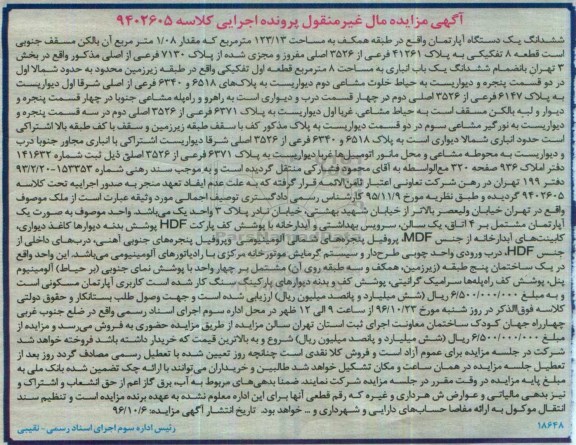 آگهی مزایده مال غیرمنقول پرونده اجرایی کلاسه ۹۴۰۲۶۰۵
ششدانگ یک دستگاه آپارتمان واقع در طبقه همکف به مساحت ۱۲۳/۱۳ مترمربع که مقدار ۱/۰۸ متر مربع آن بالکن مسقف جنوبی
است قطعه ۸ تفکیکی به پلاک ۴۱۲۶۱ فرعی از ۳۵۲۶ اصلی مفروز و مجزی شده از پلاک ۷۱۳۰ فرعی از اصلی مذکور واقع در بخش
۳ تهران بانضمام ششدانگ یک باب انباری به مساحت ۸ مترمربع قطعه اول تفکیکی واقع در طبقه زیرزمین محدود به حدود شمالا اول
در دو قسمت پنجره و دیواریست به حیاط خلوت مشاعی دوم دیواریست به پلاک‌های ۶۵۱۸ و ۶۳۴۰ فرعی از اصلی شرقا اول دیواریست
به پلاک ۶۱۴۷ فرعی از ۳۵۲۶ اصلی دوم در چهار قسمت درب و دیواری است به راهرو و راه‌پله مشاعی جنوبا در چهار قسمت پنجره و
دیوار و لبه بالکن مسقف است به حیاط مشاعی غربا اول دیواریست به پلاک ۶۳۷۱ فرعی از ۳۵۲۶ اصلی دوم در سه قسمت پنجره و
دیواریست به نورگیر مشاعی سوم در دو قسمت دیواریست به پلاک مذکور کف با سقف طبقه زیرزمین و سقف با کف طبقه بالا اشتراکی
است حدود انباری شمالا دیواری است به پلاک ۶۵۱۸ و ۶۳۴۰ فرعی از ۳۵۲۶ اصلی شرقا دیواریست اشتراکی با انباری مجاور جنوبا درب
و دیواریست به محوطه مشاعی و محل مانور اتومبیل‌ها غربا دیواریست به پلاک ۶۳۷۱ فرعی از ۳۵۲۶ اصلی ذیل ثبت شماره ۱۴۱۶۳۲
دفتر املاک ۹۳۶ صفحه ۳۲۰ مع‌الواسطه به آقای محمود منتقل گردیده است و به موجب سند رهنی شماره ۱۵۳۳۵۳-۹۳/۲/۲۰
دفتر ۱۹۹ تهران در رهن شرکت تعاونی اعتبار ثامن‌الائمه قرار گرفته که به علت عدم ایفاد تعهد منجر به صدور اجراییه تحت کلاسه
۹۴۰۲۶۰۵ گردیده و طبق نظریه مورخ ۹۵/۱۱/۹ کارشناس رسمی دادگستری توصیف اجمالی مورد وثیقه عبارت است از ملک موصوف
واقع در تهران خیابان ولیعصر بالاتر از خیابان شهید بهشتی، خیابان نادر پلاک ۳ واحد یک می‌باشد. واحد موصوف به صورت یک
آپارتمان مشتمل بر ۴ اتاق، یک سالن، سرویس بهداشتی و آبدارخانه با پوشش کف پارکت HDF پوشش بدنه دیوارها کاغذ دیواری،
کابینت‌های آبدارخانه از جنس MDF، پروفیل پنجره‌های شمالی آلومینیومی و پروفیل پنجره‌های جنوبی آهنی، درب‌های داخلی از
جنس HDF، درب ورودی واحد چوبی طرح‌دار و سیستم گرمایش موتورخانه مرکزی با رادیاتورهای آلومینیومی می‌باشد. این واحد واقع
در یک ساختمان پنج طبقه (زیرزمین، همکف و سه طبقه روی آن) مشتمل بر چهار واحد با پوشش نمای جنوبی (بر حیاط) آلومینیوم
پنل، پوشش کف راه‌پله‌ها سرامیک گرانیتی، پوشش کف و بدنه دیوارهای پارکینگ، سنگ کار شده است کاربری آپارتمان مسکونی است
و به مبلغ ۶/۵۰۰/۰۰۰/۰۰۰ ریال (شش میلیارد و پانصد میلیون ریال) ارزیابی شده است و جهت وصول طلب بستانکار و حقوق دولتی
کلاسه فوق‌الذکر در روز شنبه مورخ ۹۶/۱۰/۲۳ از ساعت ۹ الی ۱۲ ظهر در محل اداره سوم اجرای اسناد رسمی واقع در ضلع جنوب غربی
چهارراه جهان کودک ساختمان معاونت اجرای ثبت استان تهران سالن مزایده از طریق مزایده حضوری به فروش می‌رسد و مزایده از
مبلغ ۶/۵۰۰/۰۰۰/۰۰۰ ریال (شش میلیارد و پانصد میلیون ریال) شروع و به بالاترین قیمت که خریدار داشته باشد فروخته خواهد شد
شرکت در جلسه مزایده برای عموم آزاد است و فروش کلا نقدی است چنانچه روز تعیین شده با تعطیل رسمی مصادف گردد روز بعد از
تعطیل جلسه مزایده در همان ساعت و مکان تشکیل خواهد شد طالبین و خریداران می‌توانند با ارائه چک تضمین شده بانک ملی به
مبلغ پایه مزایده در وقت مقرر در جلسه مزایده شرکت نمایند. ضمنا بدهی‌های مربوط به آب، برق گاز اعم از حق انشعاب و اشتراک و
نیز بدهی مالیاتی و عوارض شهرداری و غیره که رقم قطعی آنها برای این اداره معلوم نشده به عهده برنده مزایده است و تنظیم سند
انتقال موکول به ارائه مفاصا حساب‌های دارایی و شهرداری و … خواهد بود. تاریخ انتشار آگهی مزایده: ۹۶/۱۰/۶
۱۸۶۴۸ رئیس اداره سوم اجرای اسناد رسمی - نقیبی